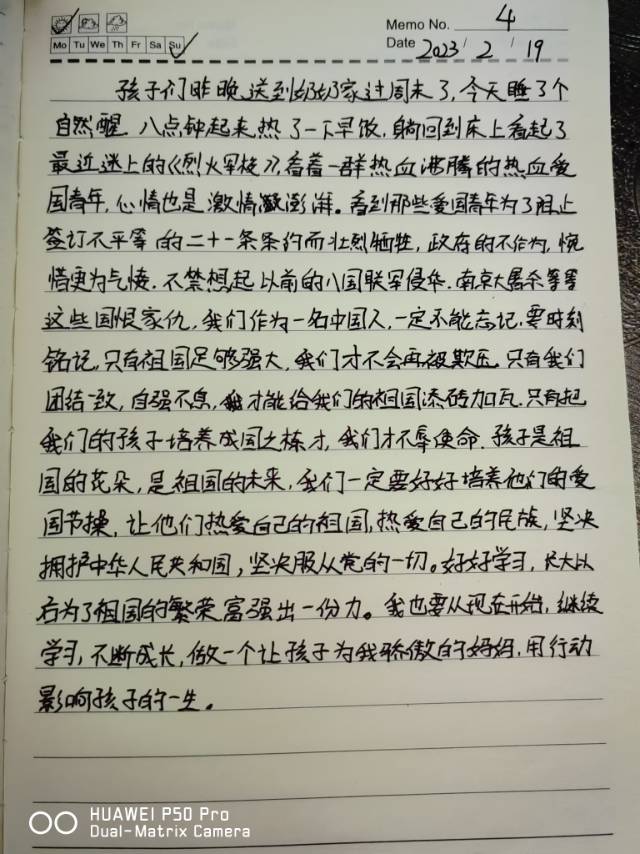 Memo No. 4
Mo Tu We Th Fr Sa Su
Date 2023 / 2 / 19
孩子们昨晚送到奶奶家过周末了,今天睡了个
自然醒 八点钟起来热了一下早饭,躺回到床上看起了
最近迷上的《烈火军校》,看着一群热血沸腾的热血爱
国青年,心情也是激情澎湃。看到那些爱国青年为了阻止
签订不平等的二十一条条约而壮烈牺牲,政府的不作为,惋
惜更为气愤.不禁想起以前的八国联军侵华.南京大屠杀等等
这些国恨家仇,我们作为一名中国人,一定不能忘记,要时刻
铭记,只有祖国足够强大,我们才不会再被欺压.只有我们
团结一致,自强不息,才能给我们的祖国添砖加瓦.只有把
我们的孩子培养成国之栋才,我们才不辱使命.孩子是祖
国的花朵,是祖国的未来,我们一定要好好培养他们的爱
国节操,让他们热爱自己的祖国,热爱自己的民族,坚决
拥护中华人民共和国,坚决服从党的一切。好好学习,长大以
后为了祖国的繁荣富强出一份力。我也要从现在开始,继续
学习,不断成长,做一个让孩子为我骄傲的妈妈,用行动
影响孩子的一生。
HUAWEI P50 Pro
Dual-Matrix Camera